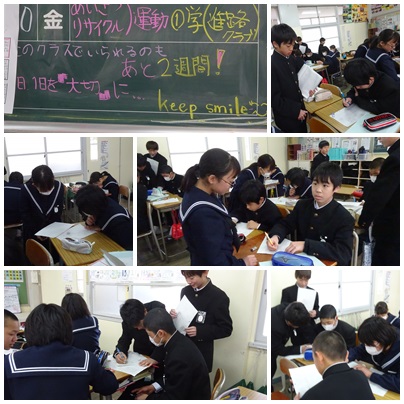 0 金 あいさつ 運動 ①学(進路
リサイクル クラブ)
このクラスでいられるのも
あと2週間!
1日1日を"大切"に…
keep smile